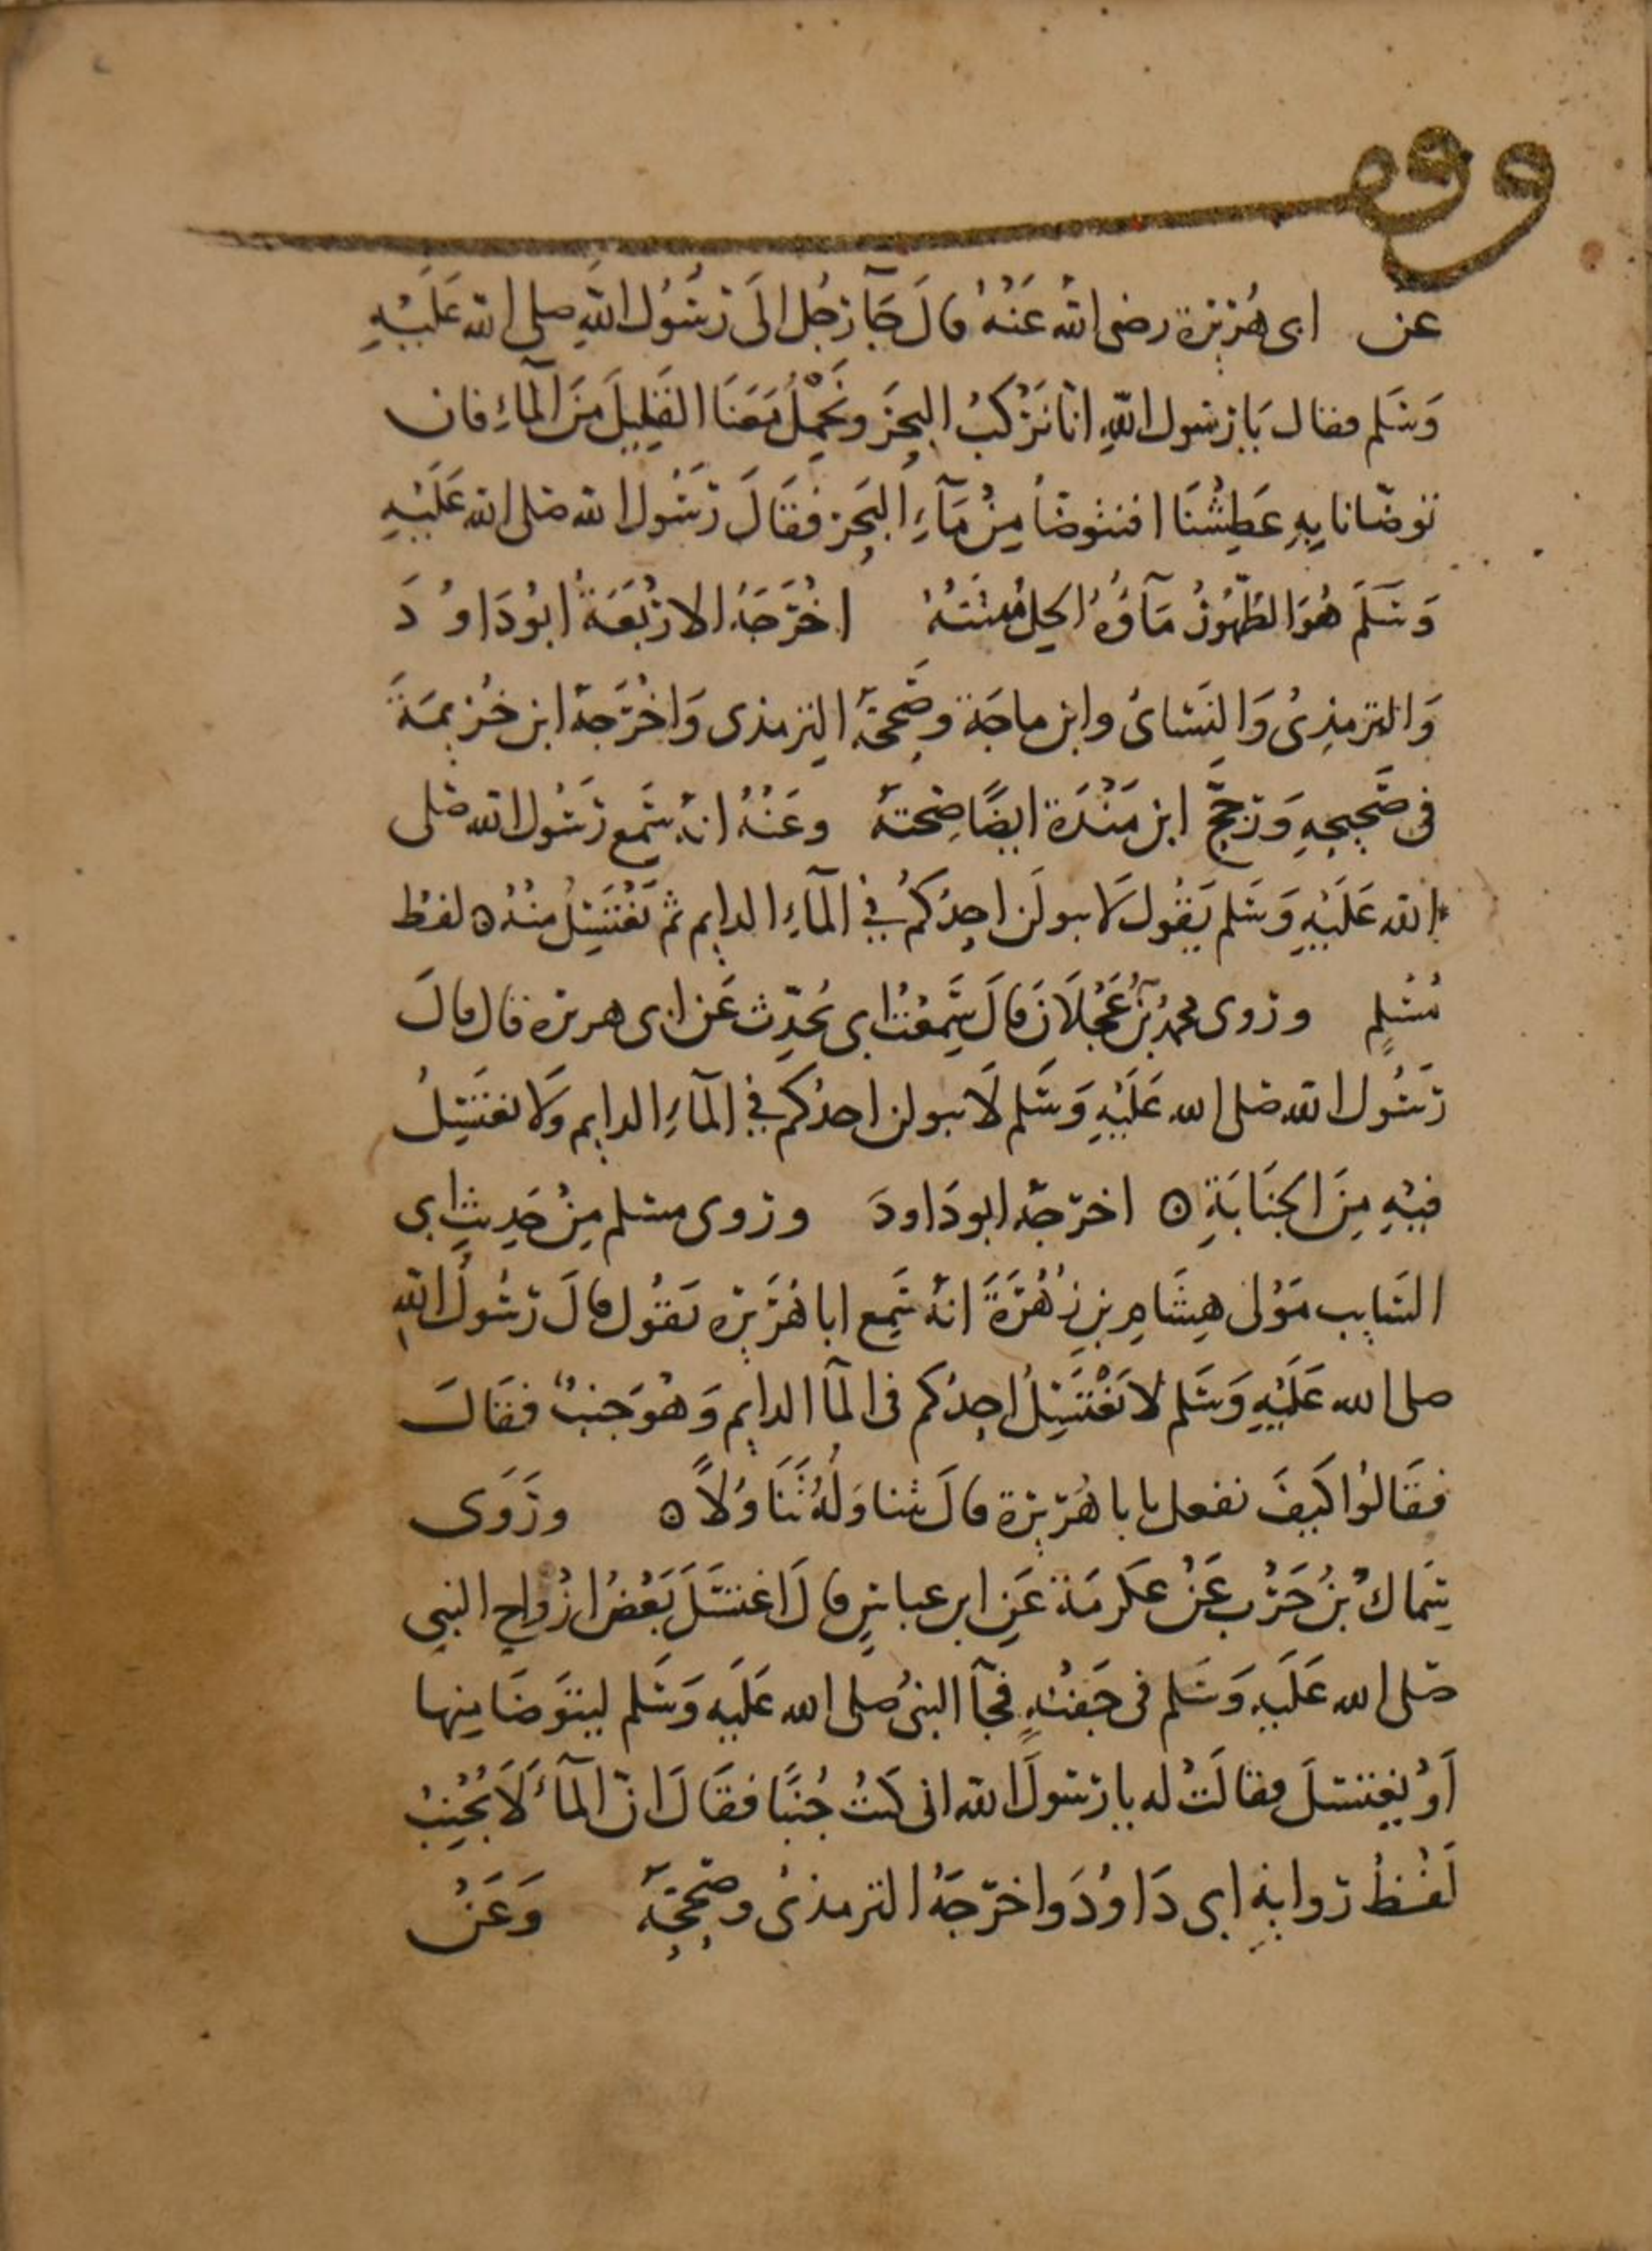 وقف
عن ابى هُرَيْرة رضى اللهُ عَنْهُ قالَ جَآ رَجُل الَى رَسُول اللهِ صلى الله عَلَيْهِ
وَسَلم فقال يَا رَسُول اللهِ انّا نَرْكَبُ البحْرَ ونَحْمِلُ مَعَنَا القَلِيلَ مِنَ المآءِ فان
توضّانا بِهِ عَطِشْنَا افنتوضّأ مِنْ مَآءِ البَحِرْ فَقَالَ رَسُول الله صَلى الله عَلَيْهِ
وَسَلَمَ هُوَ الطّهُورُ مَآؤُهُ الحِلُ مَيْتَتُهُ اخْرَجَهُ الارْبَعَةُ ابُو دَاوُ دَ
وَالترمِذِىُ وَالنَسَائُ وابن ماجَة وصَححَّهُ الترمذى وَاخْرَجَهُ ابن خُزيمَةَ
فى صَحِيحِهِ وَرَجحَّ ابن مَنْدَة ايضًا صِحتَهُ وعَنْهُ انه سَمِع رَسُول الله صَلى
الله عَلَيْهِ وَسَلم يَقُول لَا يبولَن احِدُكُم فِي المآءِ الدايم ثم يَغْتَسِلُ مِنْهُ ه لفظ
مُسْلِمٍ وروى محمدُ بنُ عَجْلَانَ قالَ سَمِعْتُ ابى يُحَدِّث عَن ابى هريره قال قالَ
رَسُول الله صَلى الله عَلَيْهِ وَسَلم لَا يبولن احدُكم فِي المآءِ الدايم وَلَا يغتَسِلُ
فيْهِ مِنَ الجَنَابَةِ ه اخرَجَهُ ابو دَاودَ وروى مسلم مِنْ حَدِيثِ ابى
السَايب مَوْلى هِشَامِ بنِ زُهْرَةَ انهُ سَمِع ابا هُرَيْرَه يَقُول قالَ رَسُولُ اللهِ
صلى الله عَلَيْهِ وَسَلم لا يَغْتَسِلُ احِدُكم فى المآ الدايم وَهُوَ جنبٌ فقَالَ
فقَالوُا كَيفَ نفعل يا با هُرَيْرَة قالَ يتناوَلُهُ تَنَاوُلاً ه ورَوَى
سِمَاكُ بنُ حَرْب عَنْ عكرمَة عَنِ ابن عباسٍ قالَ اغتسَلَ بَعْضُ ازْواج النبى
صَلى الله عَلَيهِ وَسَلم فى جَفنَةٍ فجآ النبىُ صلى الله عَلَيهِ وَسَلم ليتوَضَا مِنها
اَوْ يغتسلَ فقالَتْ له يا رَسُولَ الله انى كنتُ جُنبًا فقَالَ انّ المآءَ لَا يُجْنِبُ
لَفْظُ رواية ابى دَاوُدَ واخرَجَهُ الترمذىُ وصَححَّهُ وَعَنْ